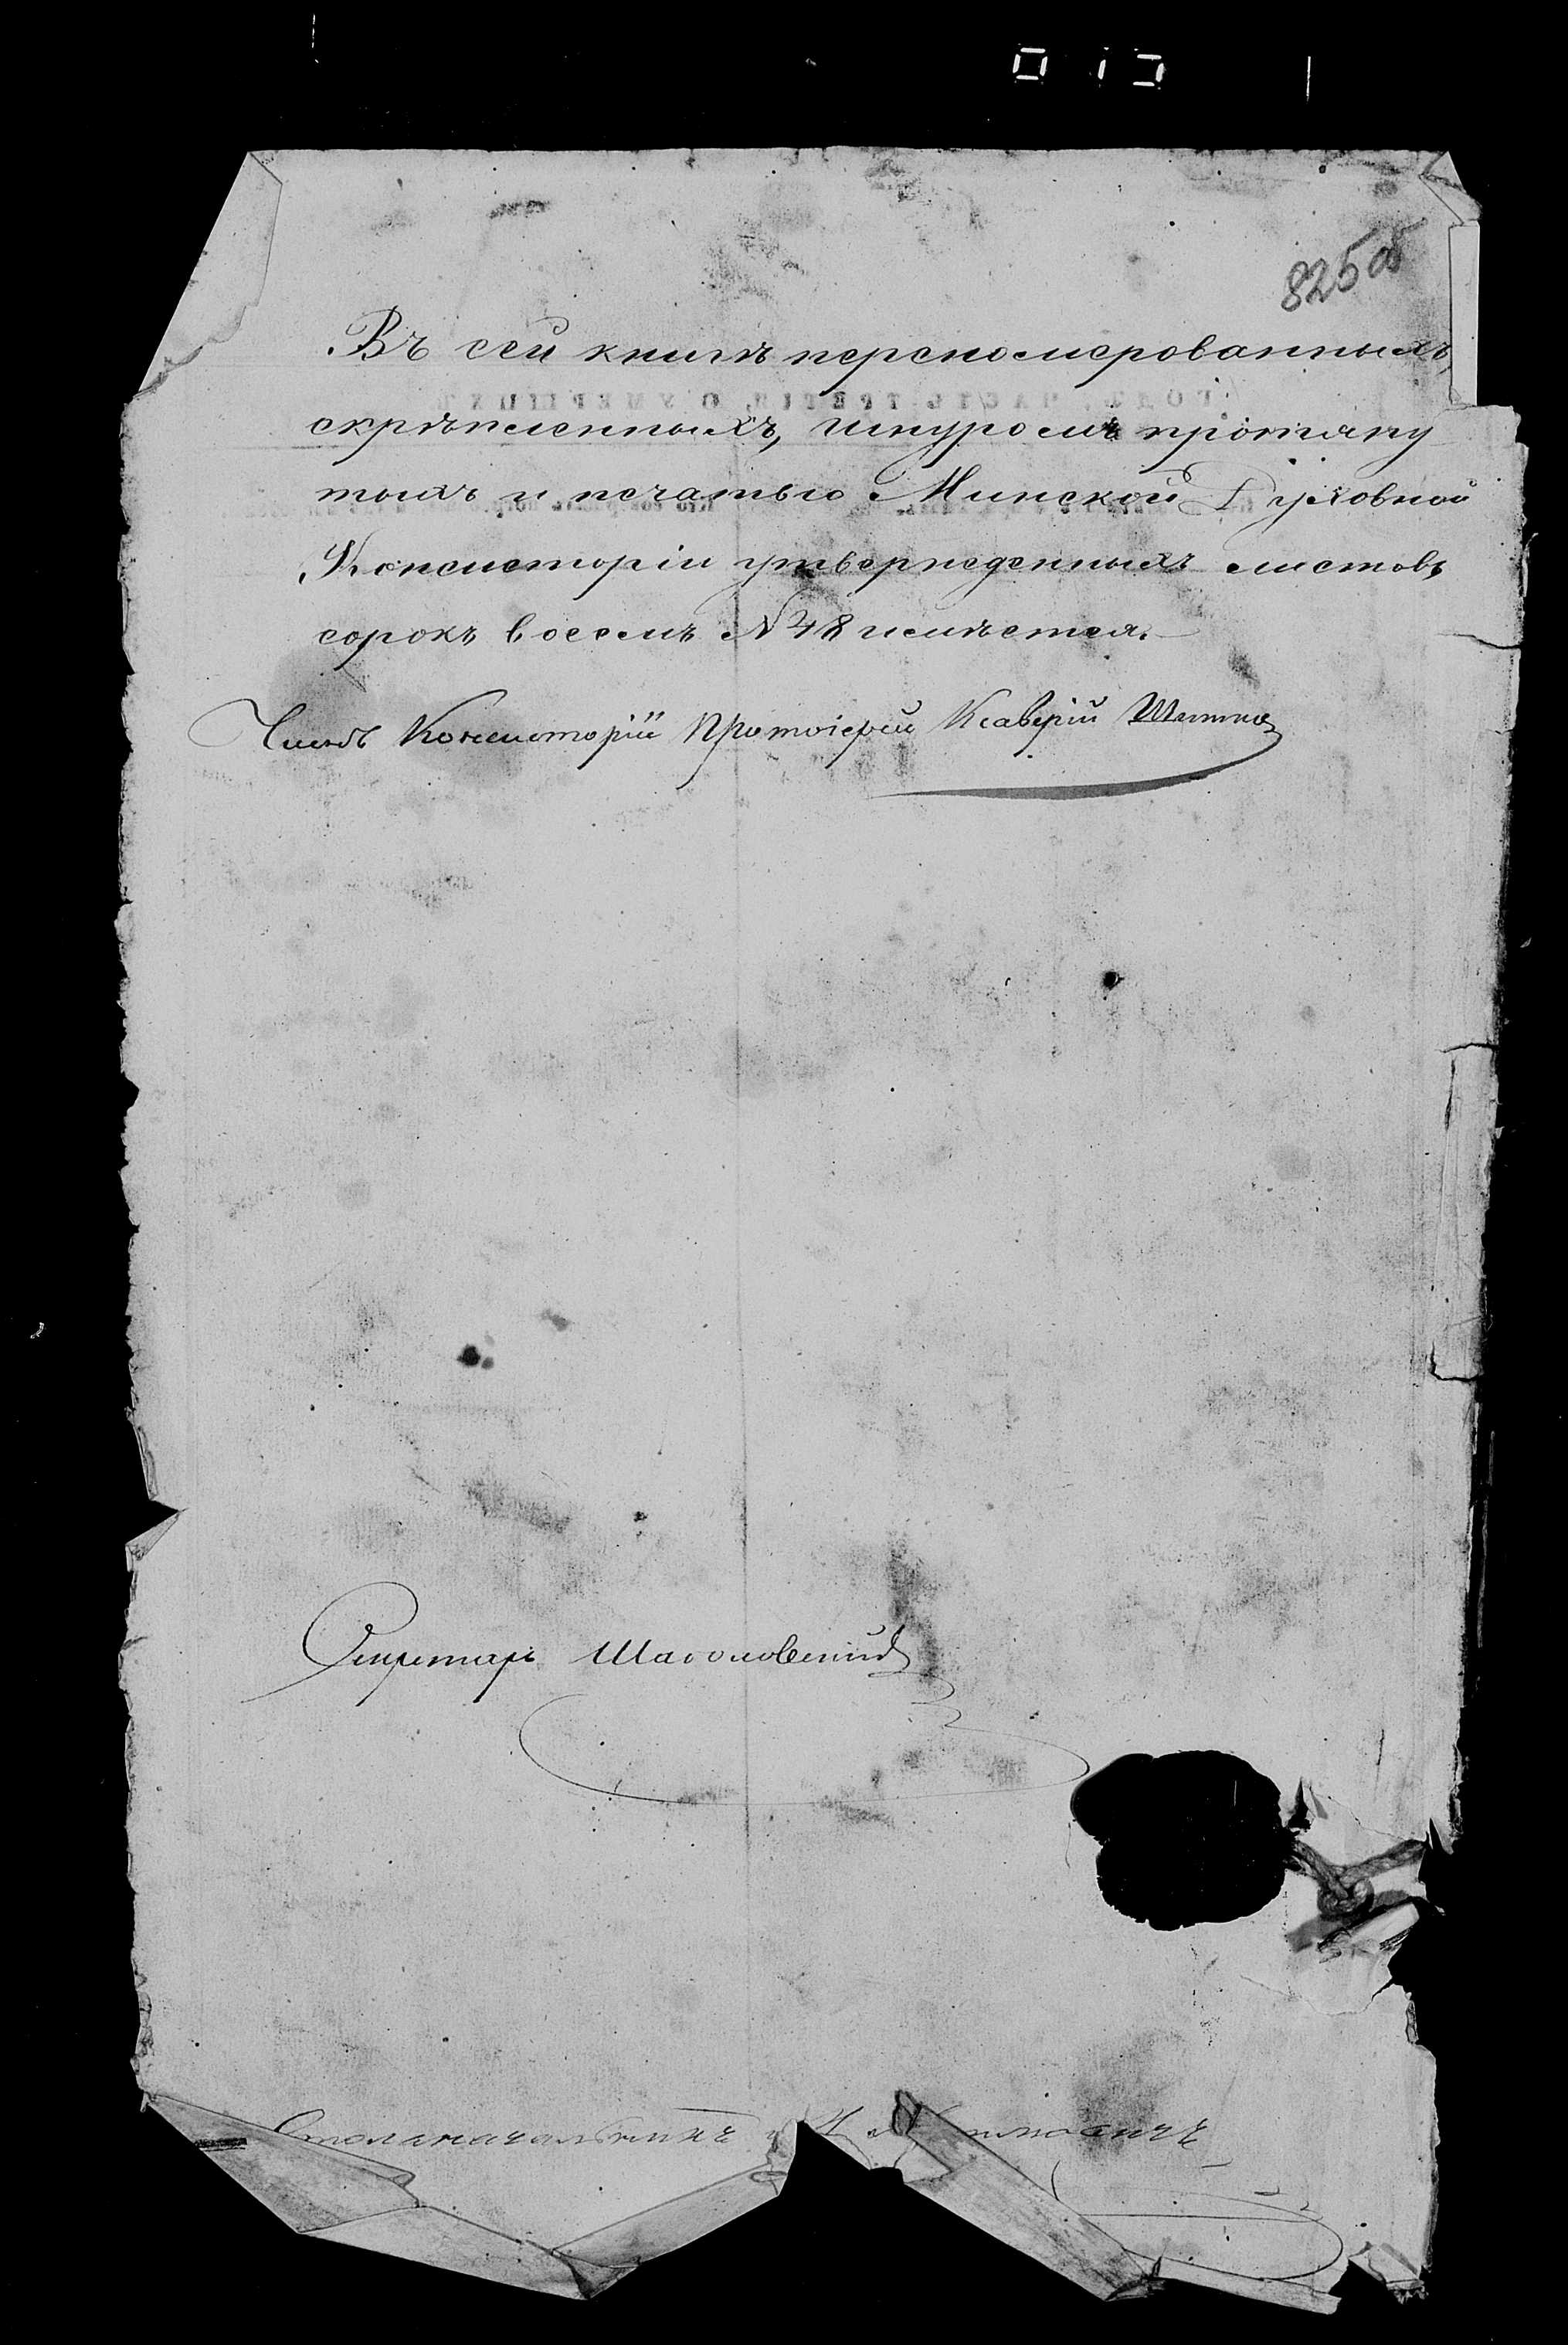 825 об
Въ сей книгѣ перенумерованныхъ,
скрѣпленныхъ, шнуромъ протяну
тыхъ и печатью Минской Духовной
Консисторіи утвержденныхъ листовъ
сорокъ восемь № 48 имѣется.
Членъ Консисторіи Протоіерей Ксаверій
Секретарь
Столоначальникъ